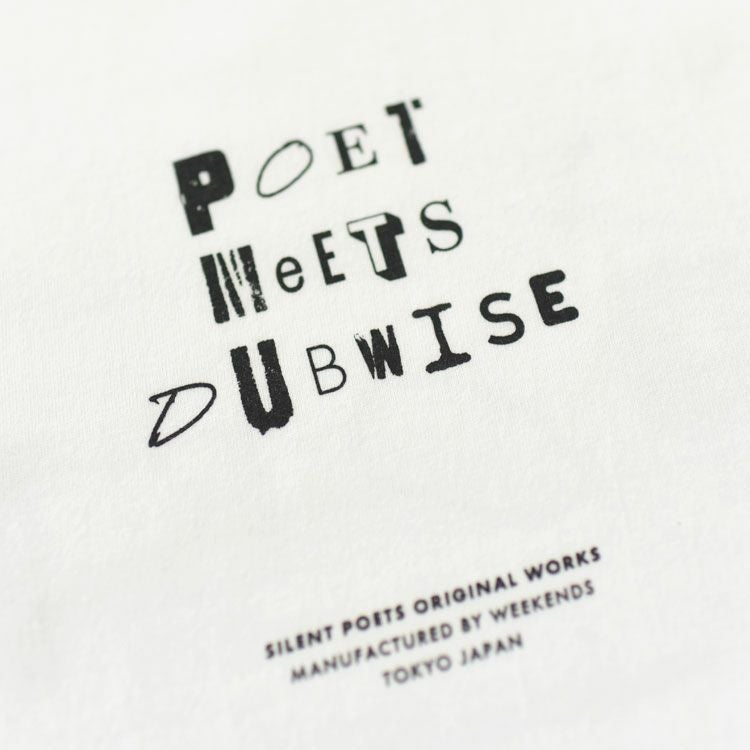 POET
MeETS
DUBWISE
SILENT POETS ORIGINAL WORKS
MANUFACTURED BY WEEKENDS
TOKYO JAPAN